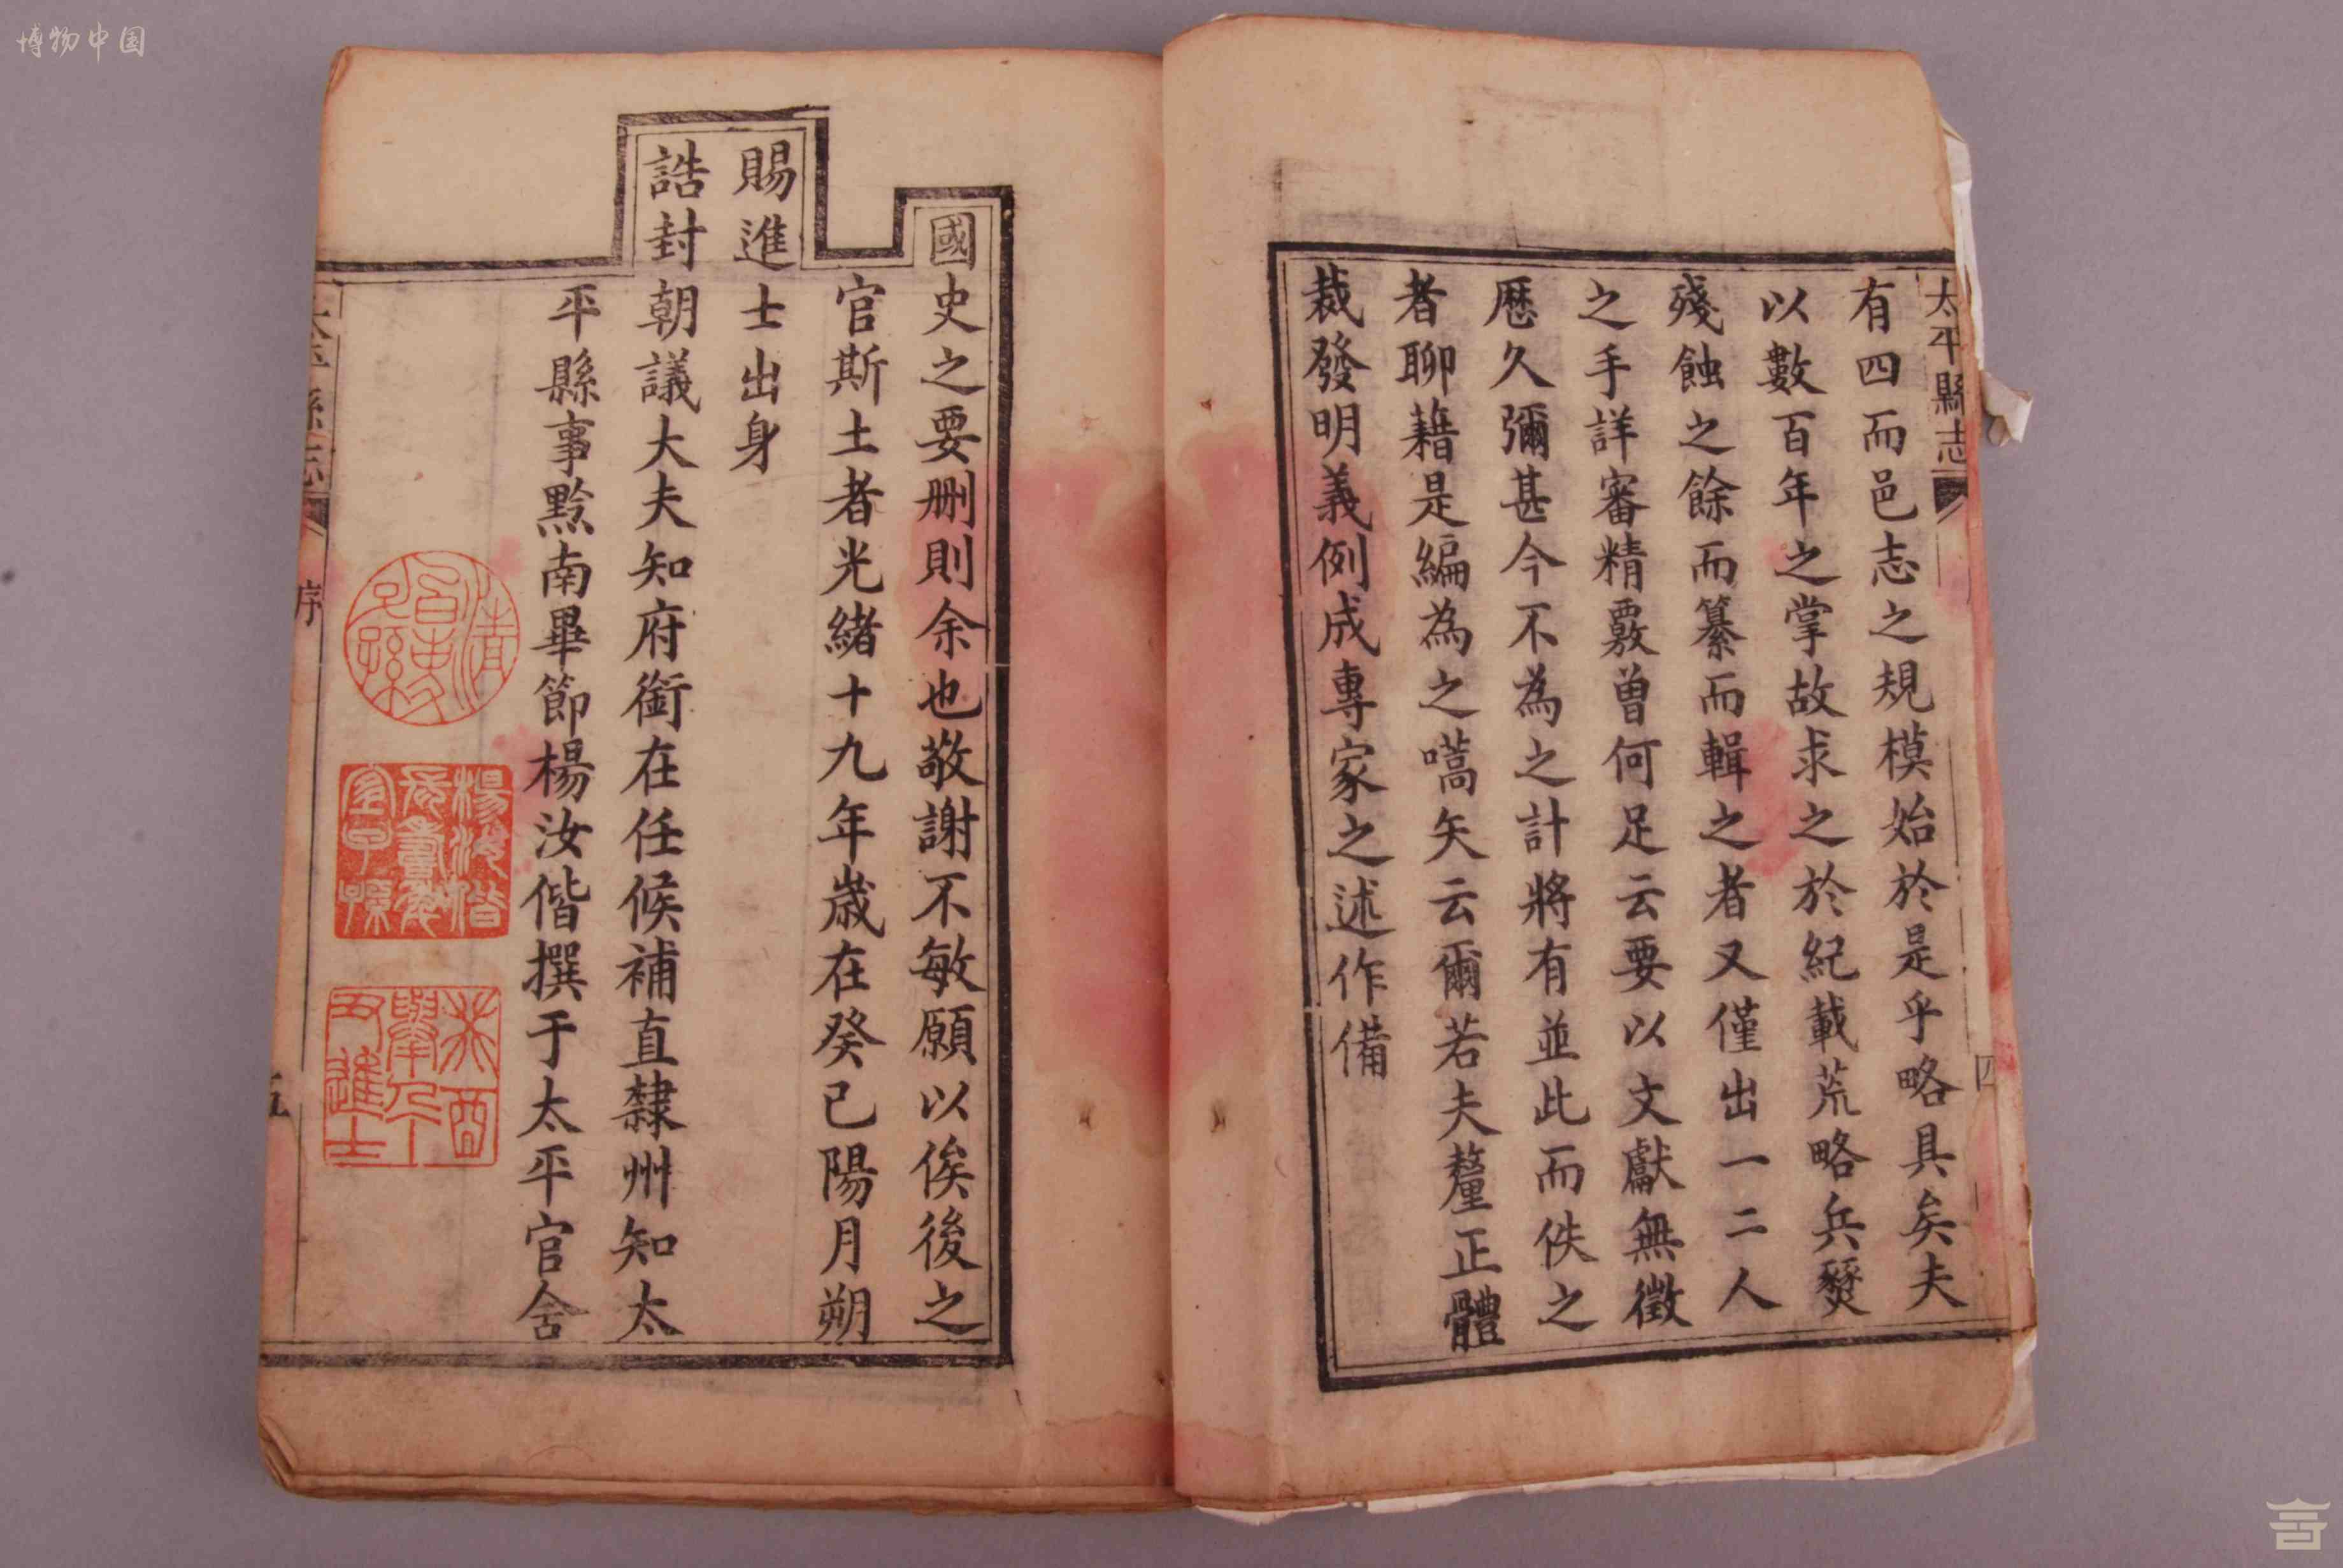 博物中国
太平縣志
四
有四而邑志之規模始於是乎略具矣夫
以數百年之掌故求之於紀載荒略兵燹
殘蝕之餘而纂而輯之者又僅出一二人
之手詳審精覈曾何足云要以文獻無徵
歷久彌甚今不為之計將有並此而佚之
者聊藉是編為之嚆矢云爾若夫釐正體
裁發明義例成專家之述作備
國史之要刪則余也敬謝不敏願以俟後之
官斯土者光緒十九年歲在癸巳陽月朔
賜進士出身
誥封朝議大夫知府銜在任候補直隸州知太
平縣事黔南畢節楊汝偕撰于太平官舍
清白吏子孫
楊汝偕
癸酉舉人丁丑進士
太平縣志
序
五